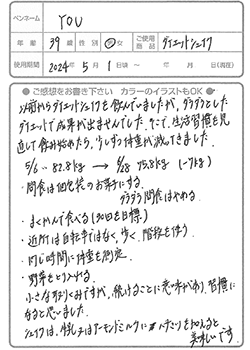 ペンネーム YOU
年齢 39歳 性別 男・女 ご使用商品 ダイエットシェイク
使用期間 2024年 5月 1日頃 〜 年 月 日(現在)
● ご感想をお書き下さい カラーのイラストもOK ●
以前からダイエットシェイクを飲んでいましたが、ダラダラとした
ダイエットで成果が出ませんでした。そこで、生活習慣を見
直して飲み始めたら、少しずつ体重が減ってきました。
5/6 … 82.8kg → 6/28 75.8kg (-7kg)
・間食は個包装のお菓子にする。
ダラダラ間食はやめる
・よくかんで食べる(30回を目標)
・近所は自転車ではなく、歩く、階段を使う。
・同じ時間に体重を測定。
・野菜をとり入れる。
小さな努力ですが、続けることに意味があり、習慣に
なると思いました。
シェイクは、牛乳 アーモンドミルクに ハチミツを加えると
美味しいです